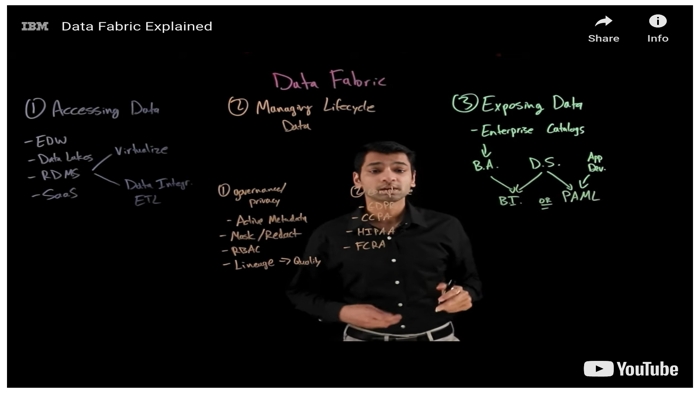 IBM Data Fabric Explained
Share
Info
Data Fabric
① Accessing Data
- EDW
- Data Lakes
- RDMS
- SaaS
Virtualize
Data Integr.
ETL
② Managing Lifecycle
Data
① governance/
privacy
- Active Metadata
- Mask/Redact
- RBAC
- Lineage => Quality
②
- GDPR
- CCPA
- HIPAA
- FCRA
③ Exposing Data
- Enterprise Catalogs
B.A.
D.S.
App
Dev.
B.I. or PAML
YouTube